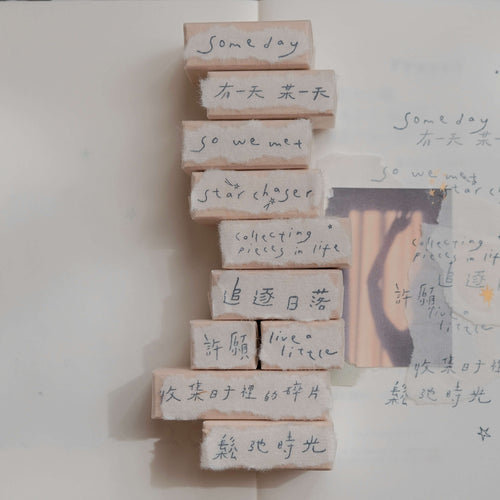 someday
有一天 某一天
so we met
star chaser
collecting
pieces in life
追逐日落
許願
live a
little
收集日子裡的碎片
鬆弛時光
someday
有一天 某一
so we met
star chas
collecting
pieces in life
追逐日
許願
live a
little
收集日子裡的碎
鬆弛時光